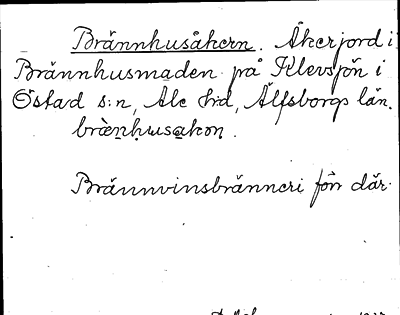 Brännhusåkern. Åkerjord i
Brännhusmaden på Klevsjön i
Östad s:n, Ale hd, Älfsborgs län.
brænhusakon.
Brännvinsbränneri förr där.